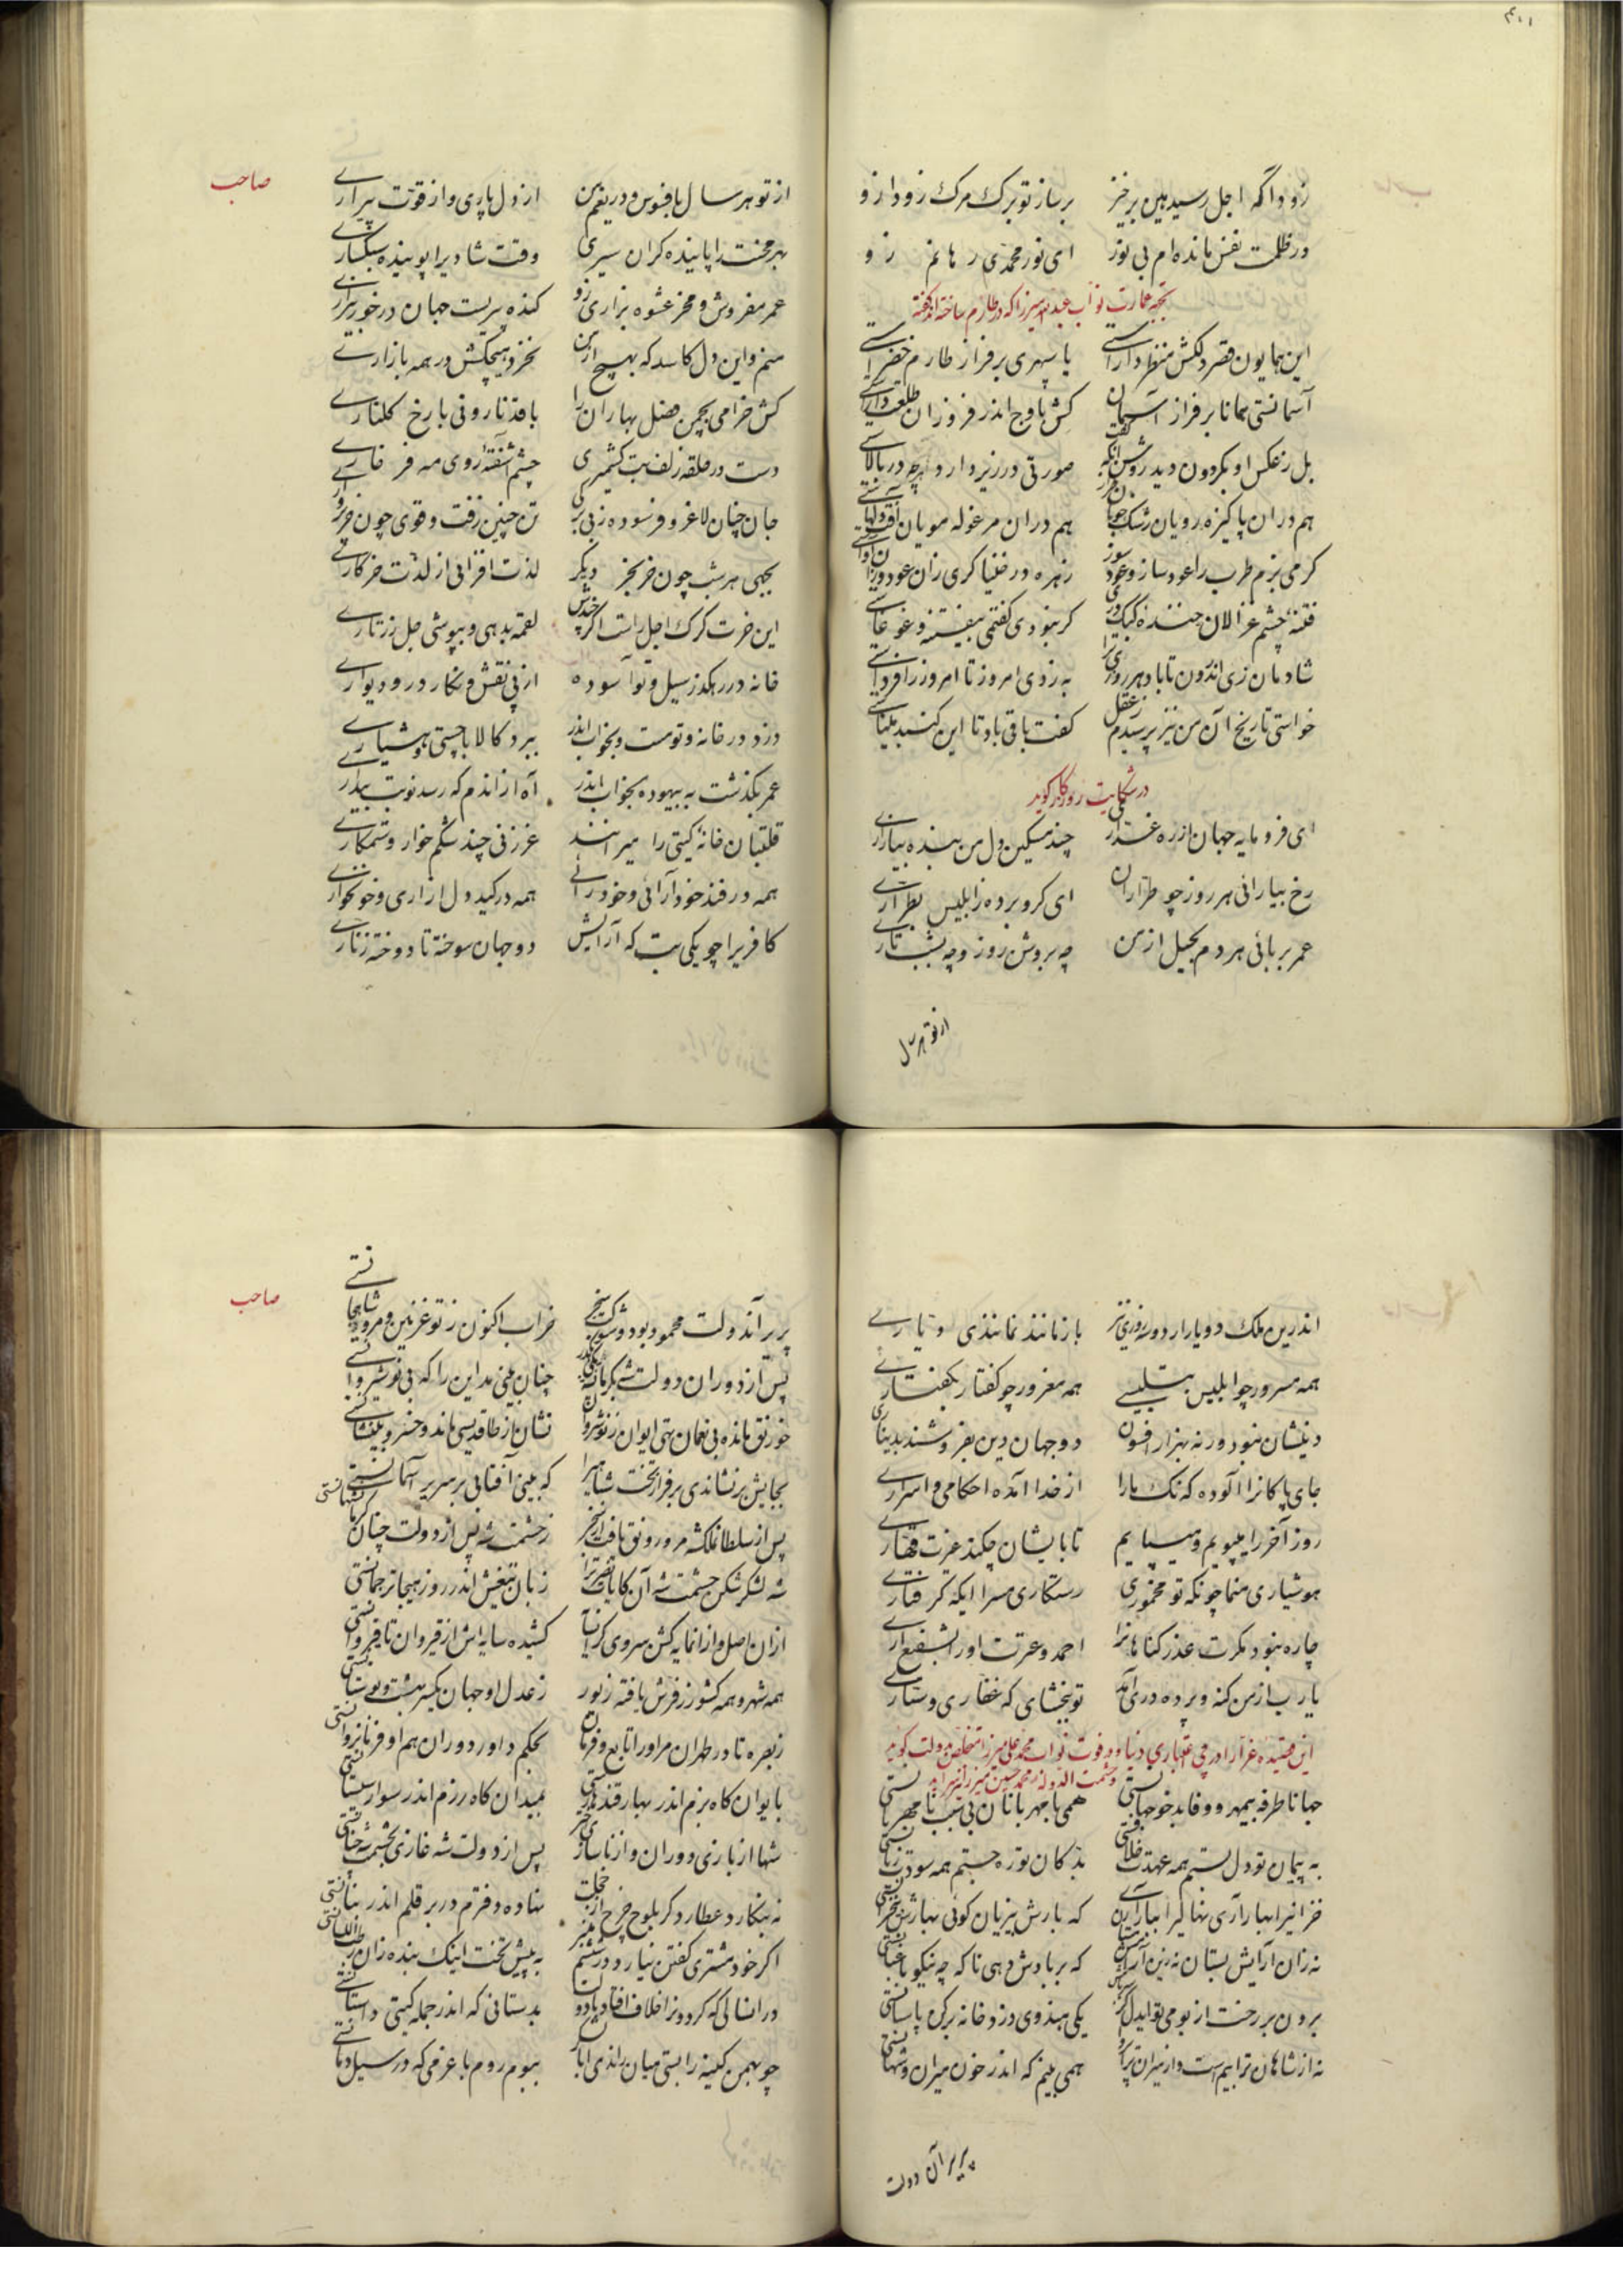 ۴۰۱
زود آ گه اجل رسید هین برخیز برساز تو برک مرک زود از و
در ظلمت نفس مانده‌ام بی نور ای نور محمدی رهانم زو
بجهه عمارت نواب عبدالله میرزا که در طارم ساخته اند گفته
این همایون قصر دلکش منظر داراستی یا سپهری بر فراز طارم خضراستی
آسمانستی همانا بر فراز آسمان کش باوج اندر فروزان طلعت داراستی
بل ز عکس او بکردون دید روشن آنکه گفت صورتی در زیر دارد و آنچه در بالاستی
هم در آن پاکیزه رویان رشک هم در آن مرغوله مویان آفت دلهاستی
کرمی بزم طرب را عود ساز و عود سوز زهره در خنیاکری زان عود
فتنه چشم غزالان خنده کبک دری کر نبودی کفتمی بیفتنه و غوغاستی
شادمان زی اندرون تا باد هر روزی ترا به ز دی امروز تا امروز را فرداستی
خواستی تاریخ آن من نیز پرسیدم ز عقل کفت باقی باد تا این کنبد میناستی
در شکایت روزکار کوید
ای فرومایه جهان از ره غداری چند مسکین دل من بنده بیازاری
رخ بیارائی هر روز چو طراران ای کرو برده ز ابلیس بطراری
عمر بربائی هر دم بحیل از من چه بروشن روز و چه بشب تاری
از تو هر سال
صاحب
از تو هر سال بافسوس و دریغم من از دل پاری و از قوت پیراری
بهر محنت را پاینده کران سیری وقت شادی را پوینده سبکساری
عمر مفروش و مخر عشوه بزاری زو کنده پیریست جهان در خور بیزاری
منم و این دل کاسد که بهیچ از من نخرد هیچکش در همه بازاری
کش خرامی بچمن فصل بهاران را با قد نارونی با رخ کلناری
دست در حلقه زلف بت کشمیری چشم آشفتهٔ روی مه فرخاری
جان چنان لاغر و فرسوده ز بی برکی تن چنین زفت و قوی چون خر پرواری
بچبی هر شب چون خر بخر دیکر لذت افزائی از لذت خر کاری
این خرت کرک اجل راست اکر چندش لقمه بدهی و بپوشی جل زرتاری
خانه در رهکذر سیل و تو آسوده از پی نقش و نکار در و دیواری
دزد در خانه و تو مست و بخواب اندر ببرد کالا با چستی و هشیاری
عمر بکذشت به بیهوده بخواب اندر آه از اندم که رسد نوبت بیداری
قلتبان خانهٔ کیتی را میرانند غرزنی چند شکم خوار و ستمکاری
همه در فند خودآرائی و خودرائی همه در کید دل ازاری و خونخواری
کافریرا چو یکی بت که آرایش دو جهان سوخته تا دوخته زناری
اندرین ملک دو یارار دو سه روزی نیز باز مانند نمانند ی و یاری
همه مسرور چو ابلیس بتلبیسی همه مغرور چو کفتار بکفتاری
دینشان نبود ور نه بهزار افسون دو جهان دین بفروشند بدیناری
جای پاکانرا آلوده که نک ما را از خدا آمده احکامی و اسراری
روز آخر را میپویم و میپایم تا بایشان چکند غیرت قهاری
هوشیاری منما چونکه تو مخموری رستکاری مسرا ایکه کرفتاری
چاره نبود مکرت عذر کناهانرا احمد و عترت او را بشفیع آری
یا رب از من کنه و پرده دری آید تو ببخشای که غفاری و ستاری
این قصیده غرا را در بی اعتباری دنیا و فوت نواب محمد علی میرزا متخلص بدولت کوید
و حشمت الدوله محمد حسین میرزا
جهانا طرفه بیمهر و وفا بدخو جهانستی همی با مهربانان بی سبب نامهربانستی
به پیمان تو دل بستم همه عهدت خلافستی بدکان تو ره جستم همه سودت زیانستی
خزانیرا بهار آری بهاریرا که بارش بیزیان کوئی بهارش بیخزانستی
نه زان آرایش بستان نه زین آسایش مستان که بر بادش دهی تا که چه نیکو باغبانستی
برون بر رخت از بوم تو ایدل یکی هندوی دزد خانه برکن پاسبانستی
نه از شاهان ترا بیمست و از میران ترا پروا همی بینم که اندر خون میران و شهانستی
پریر آن دولت
صاحب
پریر آندولت محمود بود و شوکت سنجر خراب اکنون ز تو غزنین و مرو شاهجانستی
پس از دوران دولت شه بکرمانشه چنان بینی مداین را که بی نوشیروانستی
خورنق مانده بی نعمان تهی ایوان ز نوشروان نشان باز طاقدیسی ماند و خسرو بینشانستی
بجایش بر نشاندی بر فراز تخت شاهیرا که بینی آفتابی بر سریر آسمانستی
پس از سلطان ملکشه مرو رونق یافت از سنجر ز حشمت شه پس از دولت چنان کرمانشهانستی
شه لشکر شکن حشمت شه آن کایات زبان تیغش اندر روز هیجا ترجمانستی
از آن اصل و از انمایه کشن سروی کران کشیده سایه اش از قیروان تا قیروانستی
همه شهر و همه کشور ز فرش یافته زیور ز عدل او جهان یکسر بهشت و بوستانستی
ز بصره تا در طهران مر او را تابع و فرمان بحکم داور دوران هم او فرمانروانستی
بایوان کاه بزم اندر بهار قندهارستی بمیدان کاه رزم اندر سوار سیستانستی
شها از بازی دوران و از ناسازی پس از دولت شه غازی بحشمت شه
نه بنکارد عطارد کر بلوح چرخ از خجلت نهاده دفترم در بر قلم اندر بنانستی
اکر خود مشتری کفتن نیارد در ششم منبر به پیش تخت اینک بنده زان رطب اللسانستی
در انسالی که کردون از خلاف افتاد با دولت بدستانی که اندر جمله کیتی داستانستی
چو بهمن کینه را بستی میان راندی ببوم روم با عزمی که در سیل دمانستی